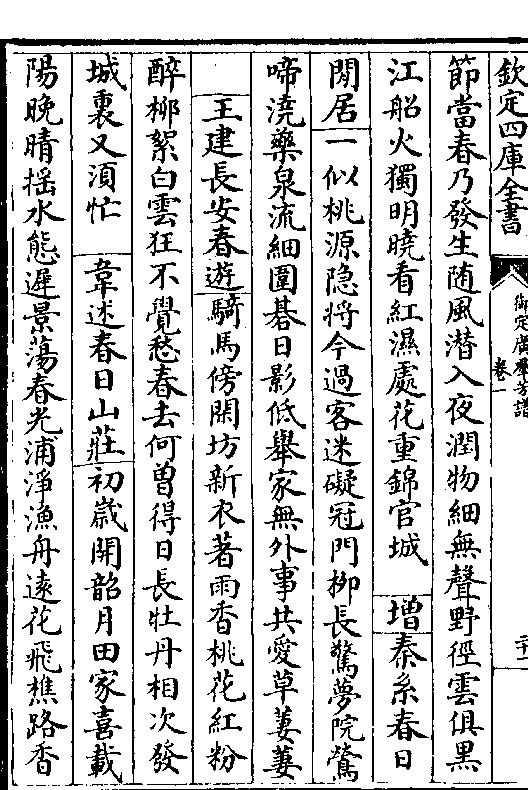 欽定四庫全書
御定廣羣芳譜
卷一
二十一
節當春乃發生随風潜入夜潤物細無聲野徑雲俱黒
江船火獨明曉看紅濕處花重錦官城 增秦系春日
閒居一似桃源隠将今過客迷礙冠門栁長驚夢院鶯
啼澆藥泉流細圍碁日影低舉家無外事共愛草萋萋
王建長安春遊騎馬傍閒坊新衣著雨香桃花紅粉
醉栁絮白雲狂不覺愁春去何曽得日長牡丹相次發
城裏又湏忙 韋述春日山莊初嵗開韶月田家喜載
陽晚晴揺水態遲景蕩春光浦淨漁舟逺花飛樵路香